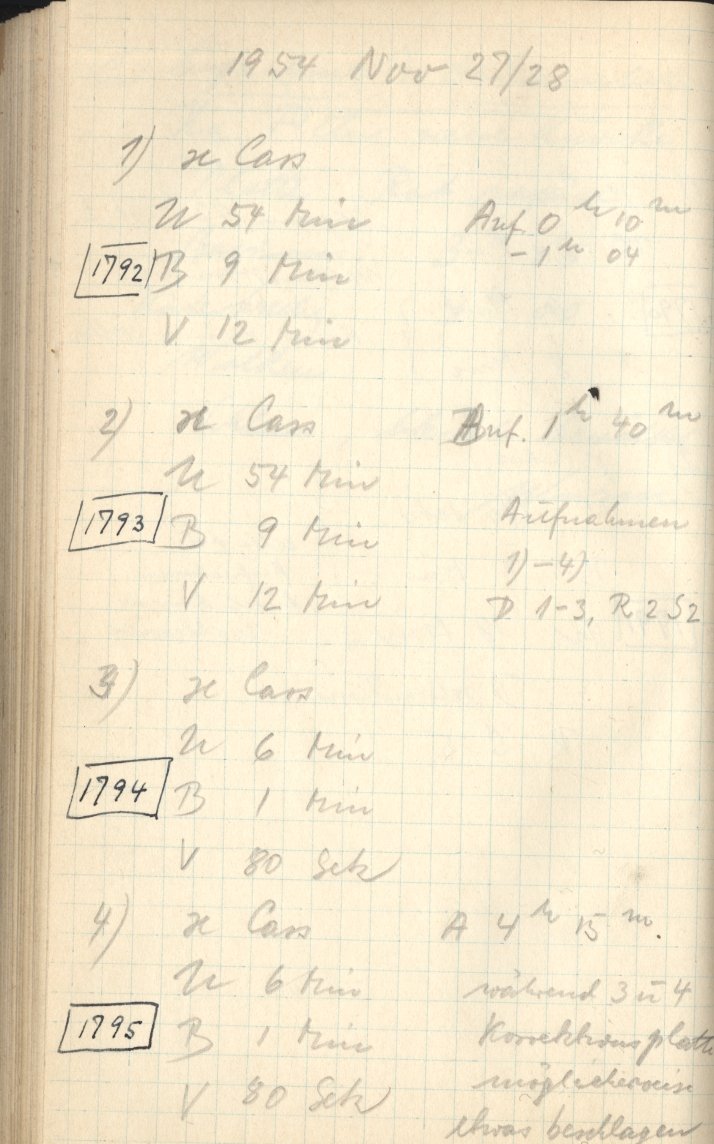 1954 Nov 27/28
1) ϰ Cass
U 54 Min Anf. 0 h 10 m
- 1 h 04
1792 B 9 Min
V 12 Min
2) ϰ Cass Anf. 1 h 40 m
U 54 Min
1793 B 9 Min Aufnahmen
1)-4)
V 12 Min D 1-3, R 2 S2
3) ϰ Cass
U 6 Min
1794 B 1 Min
V 80 Sek
4) ϰ Cass A 4 h 15 m.
U 6 Min während 3 u 4
1795 B 1 Min Korrektionsplatte
möglicherweise
V 80 Sek etwas beschlagen